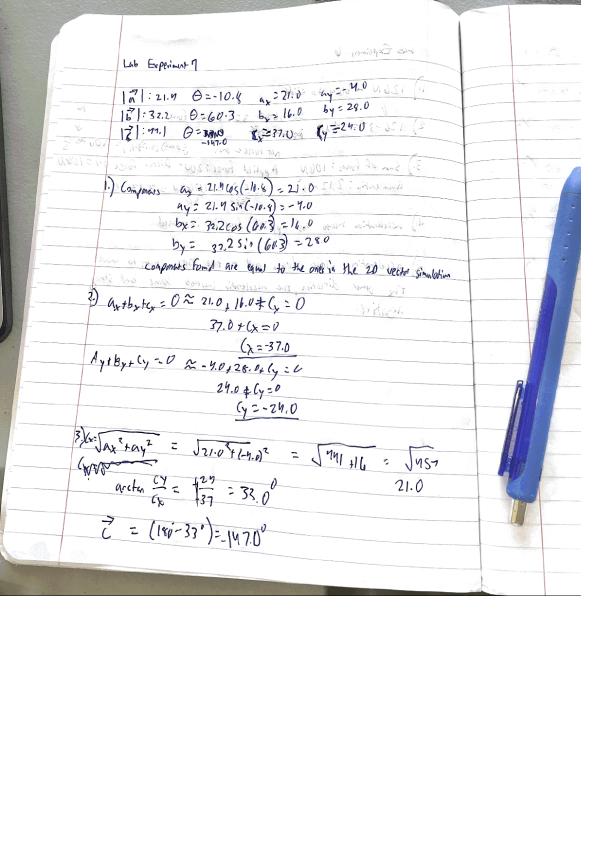 Lab Experiment 7
|a⃗|: 21.4 θ = -10.8 ax = 21.0 ay = -4.0
|b⃗|: 32.2 θ = 60.3 bx = 16.0 by = 28.0
|c⃗|: 44.1 θ = -147.0 Cx = 37.0 Cy = 24.0
1.) Components ax = 21.4 cos(-10.8) = 21.0
ay = 21.4 sin(-10.8) = -4.0
bx = 32.2 cos(60.3) = 16.0
by = 32.2 sin(60.3) = 28.0
components found are equal to the ones in the 2D vector simulation
2.) ax+bx+cx = 0 ≈ 21.0 + 16.0 + Cx = 0
37.0 + Cx = 0
Cx = -37.0
Ay+By+Cy = 0 ≈ -4.0 + 28.0 + Cy = 0
24.0 + Cy = 0
Cy = -24.0
3.) √ax²+ay² = √21.0²+(-4.0)² = √441+16 = √457
21.0
arctan Cy/Cx = 24/37 = 33.0°
c⃗ = (180°-33°) = -147.0°